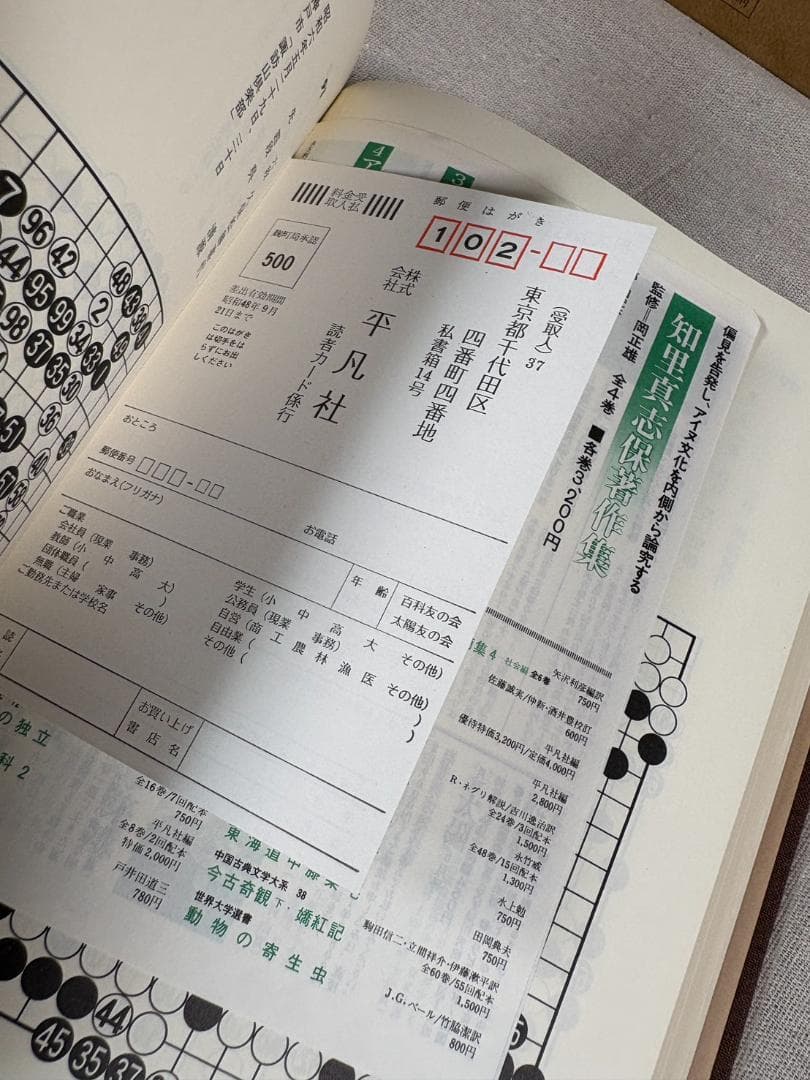 昭和六年五月二十九日、三十日
神戸市「諏訪山倶楽部」
7
96
42
44
95
99
2
48
98
4 ア
3
料金受
取人払
郵便はがき
102-
麹町局承認
500
差出有効期間
昭和48年9月
21日まで
このはがき
は切手をは
らずにお出
しください
(受取人) 37
東京都千代田区
四番町四番地
私書箱14号
株式
会社 平凡社
読者カード係行
おところ
郵便番号
おなまえ(フリガナ)
お電話
ご職業
会社員(現業 事務)
教師(小 中 高 大)
団体職員( )
無職(主婦 家事 その他)
ご勤務先または学校名
学生(小 中 高 大 その他)
公務員(現業 事務)
自営(商 工 農 林 漁 医 その他)
自由業( )
その他( )
年齢
百科友の会
太陽友の会
誌
お買い上げ
書店名
偏見を告発し、アイヌ文化を内側から論究する
知里真志保著作集
監修=岡正雄 全4巻 ■各巻3,200円
集4 社会編 全6巻
矢沢利彦編訳
750円
佐藤誠実/仲新・酒井豊校訂
600円
平凡社編
優待特価3,200円/定価4,000円
平凡社編
2,800円
R・ネグリ解説/吉川逸治訳
全24巻/3回配本
1,500円
永竹威
全48巻/15回配本
1,300円
水上勉
750円
田岡典夫
750円
駒田信二・立間祥介・伊藤漱平訳
全60巻/55回配本
1,500円
J.G.ベール/竹脇潔訳
800円
の独立
科2
全16巻/7回配本
750円
平凡社編
全8巻/2回配本
特価2,000円
戸井田道三
780円
東海道中膝栗毛
中国古典文学大系 38
今古奇観 下・嬌紅記
世界大学選書
動物の寄生虫
44
45
35
37